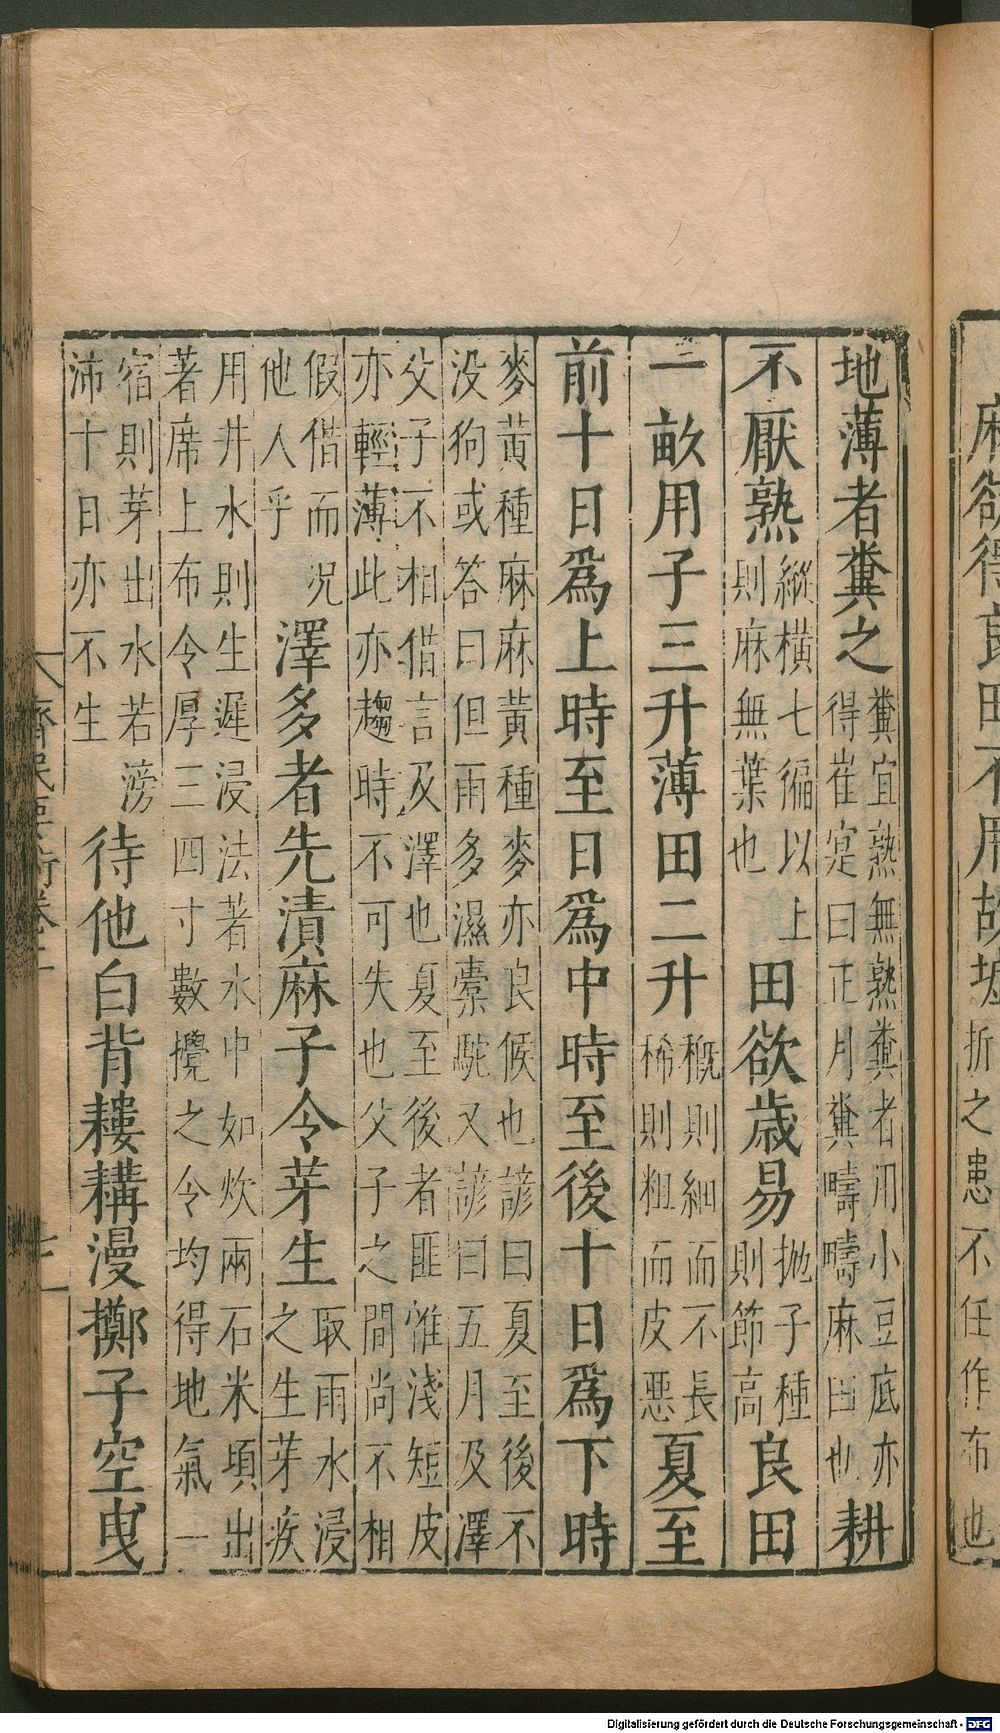 麻欲得良田不用故墟折之患不任作布也
地薄者糞之糞宜熟無熟糞者用小豆底亦
得崔寔曰正月糞疇疇麻田也耕
不厭熟縱橫七徧以上
則麻無葉也田欲歲易抛子種
則節高良田
一畝用子三升薄田二升穊則細而不長
稀則粗而皮惡夏至
前十日爲上時至日爲中時至後十日爲下時
麥黃種麻麻黃種麥亦良候也諺曰夏至後不
没狗或答曰但雨多濕橐駝又諺曰五月及澤
父子不相借言及澤也夏至後者匪惟淺短皮
亦輕薄此亦趨時不可失也父子之間尚不相
假借而况
他人乎澤多者先漬麻子令芽生取雨水浸
之生芽疾
用井水則生遲浸法著水中如炊兩石米頃出
著席上布令厚三四寸數攪之令均得地氣一
宿則芽出水若滂
沛十日亦不生待他白背耬耩漫擲子空曳
齊民要術卷二